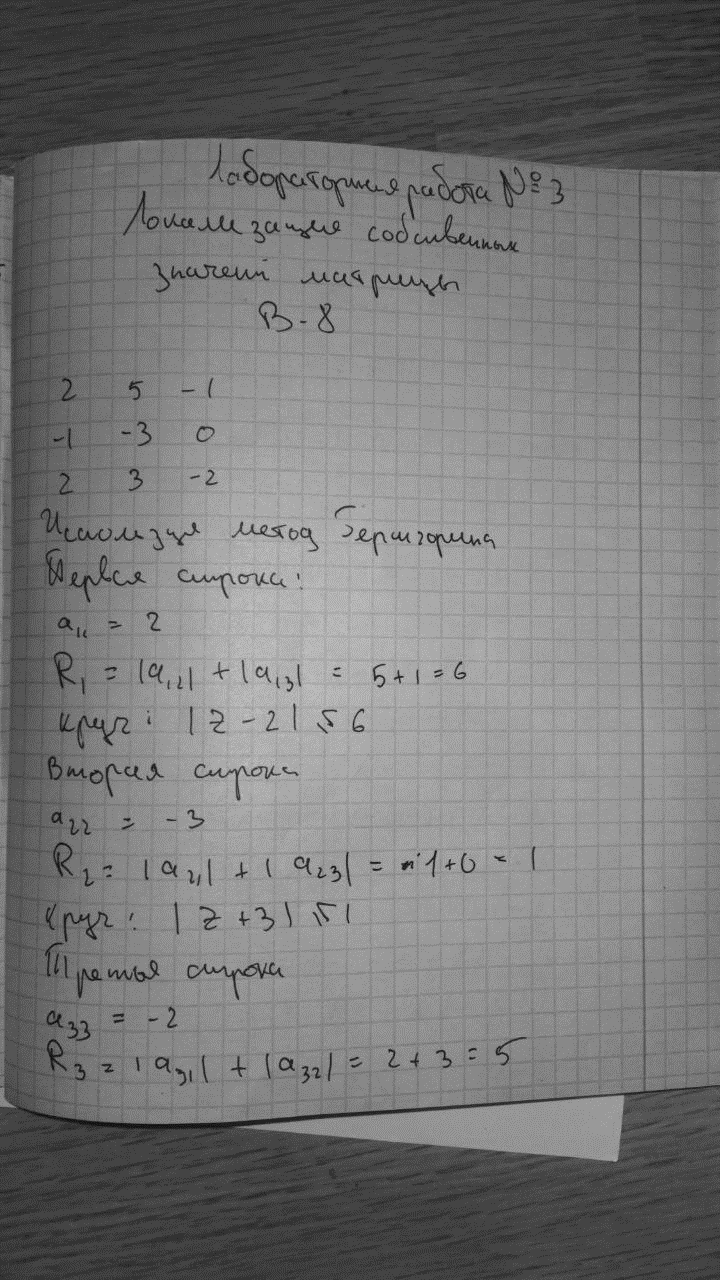 Лабораторная работа №3
Локализация собственных
значений матрицы
В-8
2 5 -1
-1 -3 0
2 3 -2
Используя метод Гершгорина
Первая строка:
a₁₁ = 2
R₁ = |a₁₂| + |a₁₃| = 5+1=6
круг: |z - 2| ≤ 6
Вторая строка
a₂₂ = -3
R₂ = |a₂₁| + |a₂₃| = 1+0 = 1
круг: |z + 3| ≤ 1
Третья строка
a₃₃ = -2
R₃ = |a₃₁| + |a₃₂| = 2 + 3 = 5